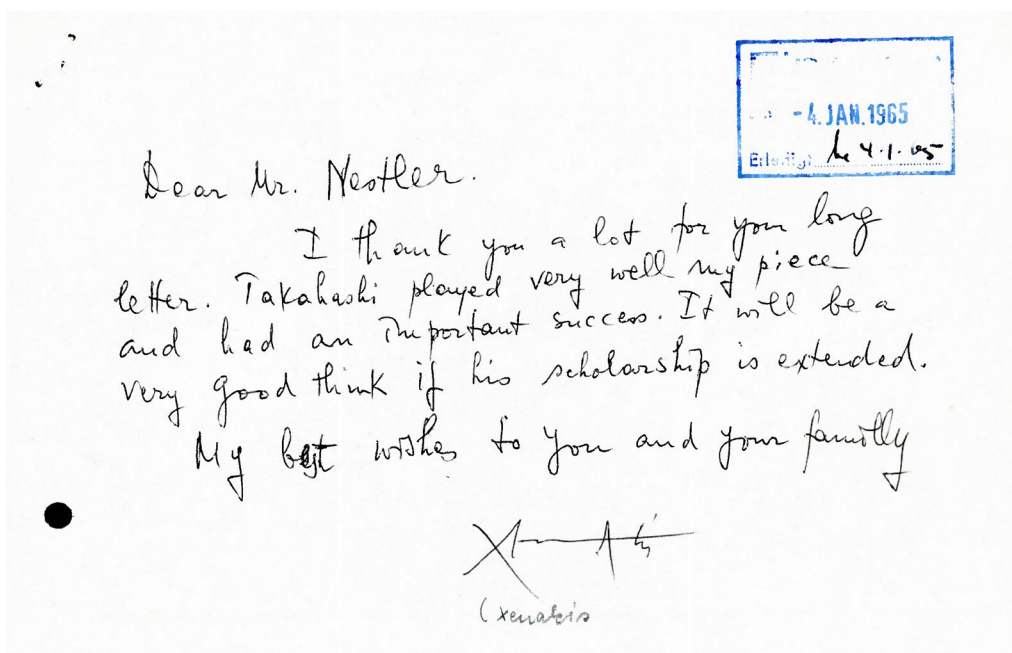 -4. JAN. 1965
Erledigt: 4.1.65
Dear Mr. Nestler.
I thank you a lot for your long
letter. Takahashi played very well my piece
and had an important success. It will be a
very good think if his scholarship is extended.
My best wishes to you and your familly
(Xenakis